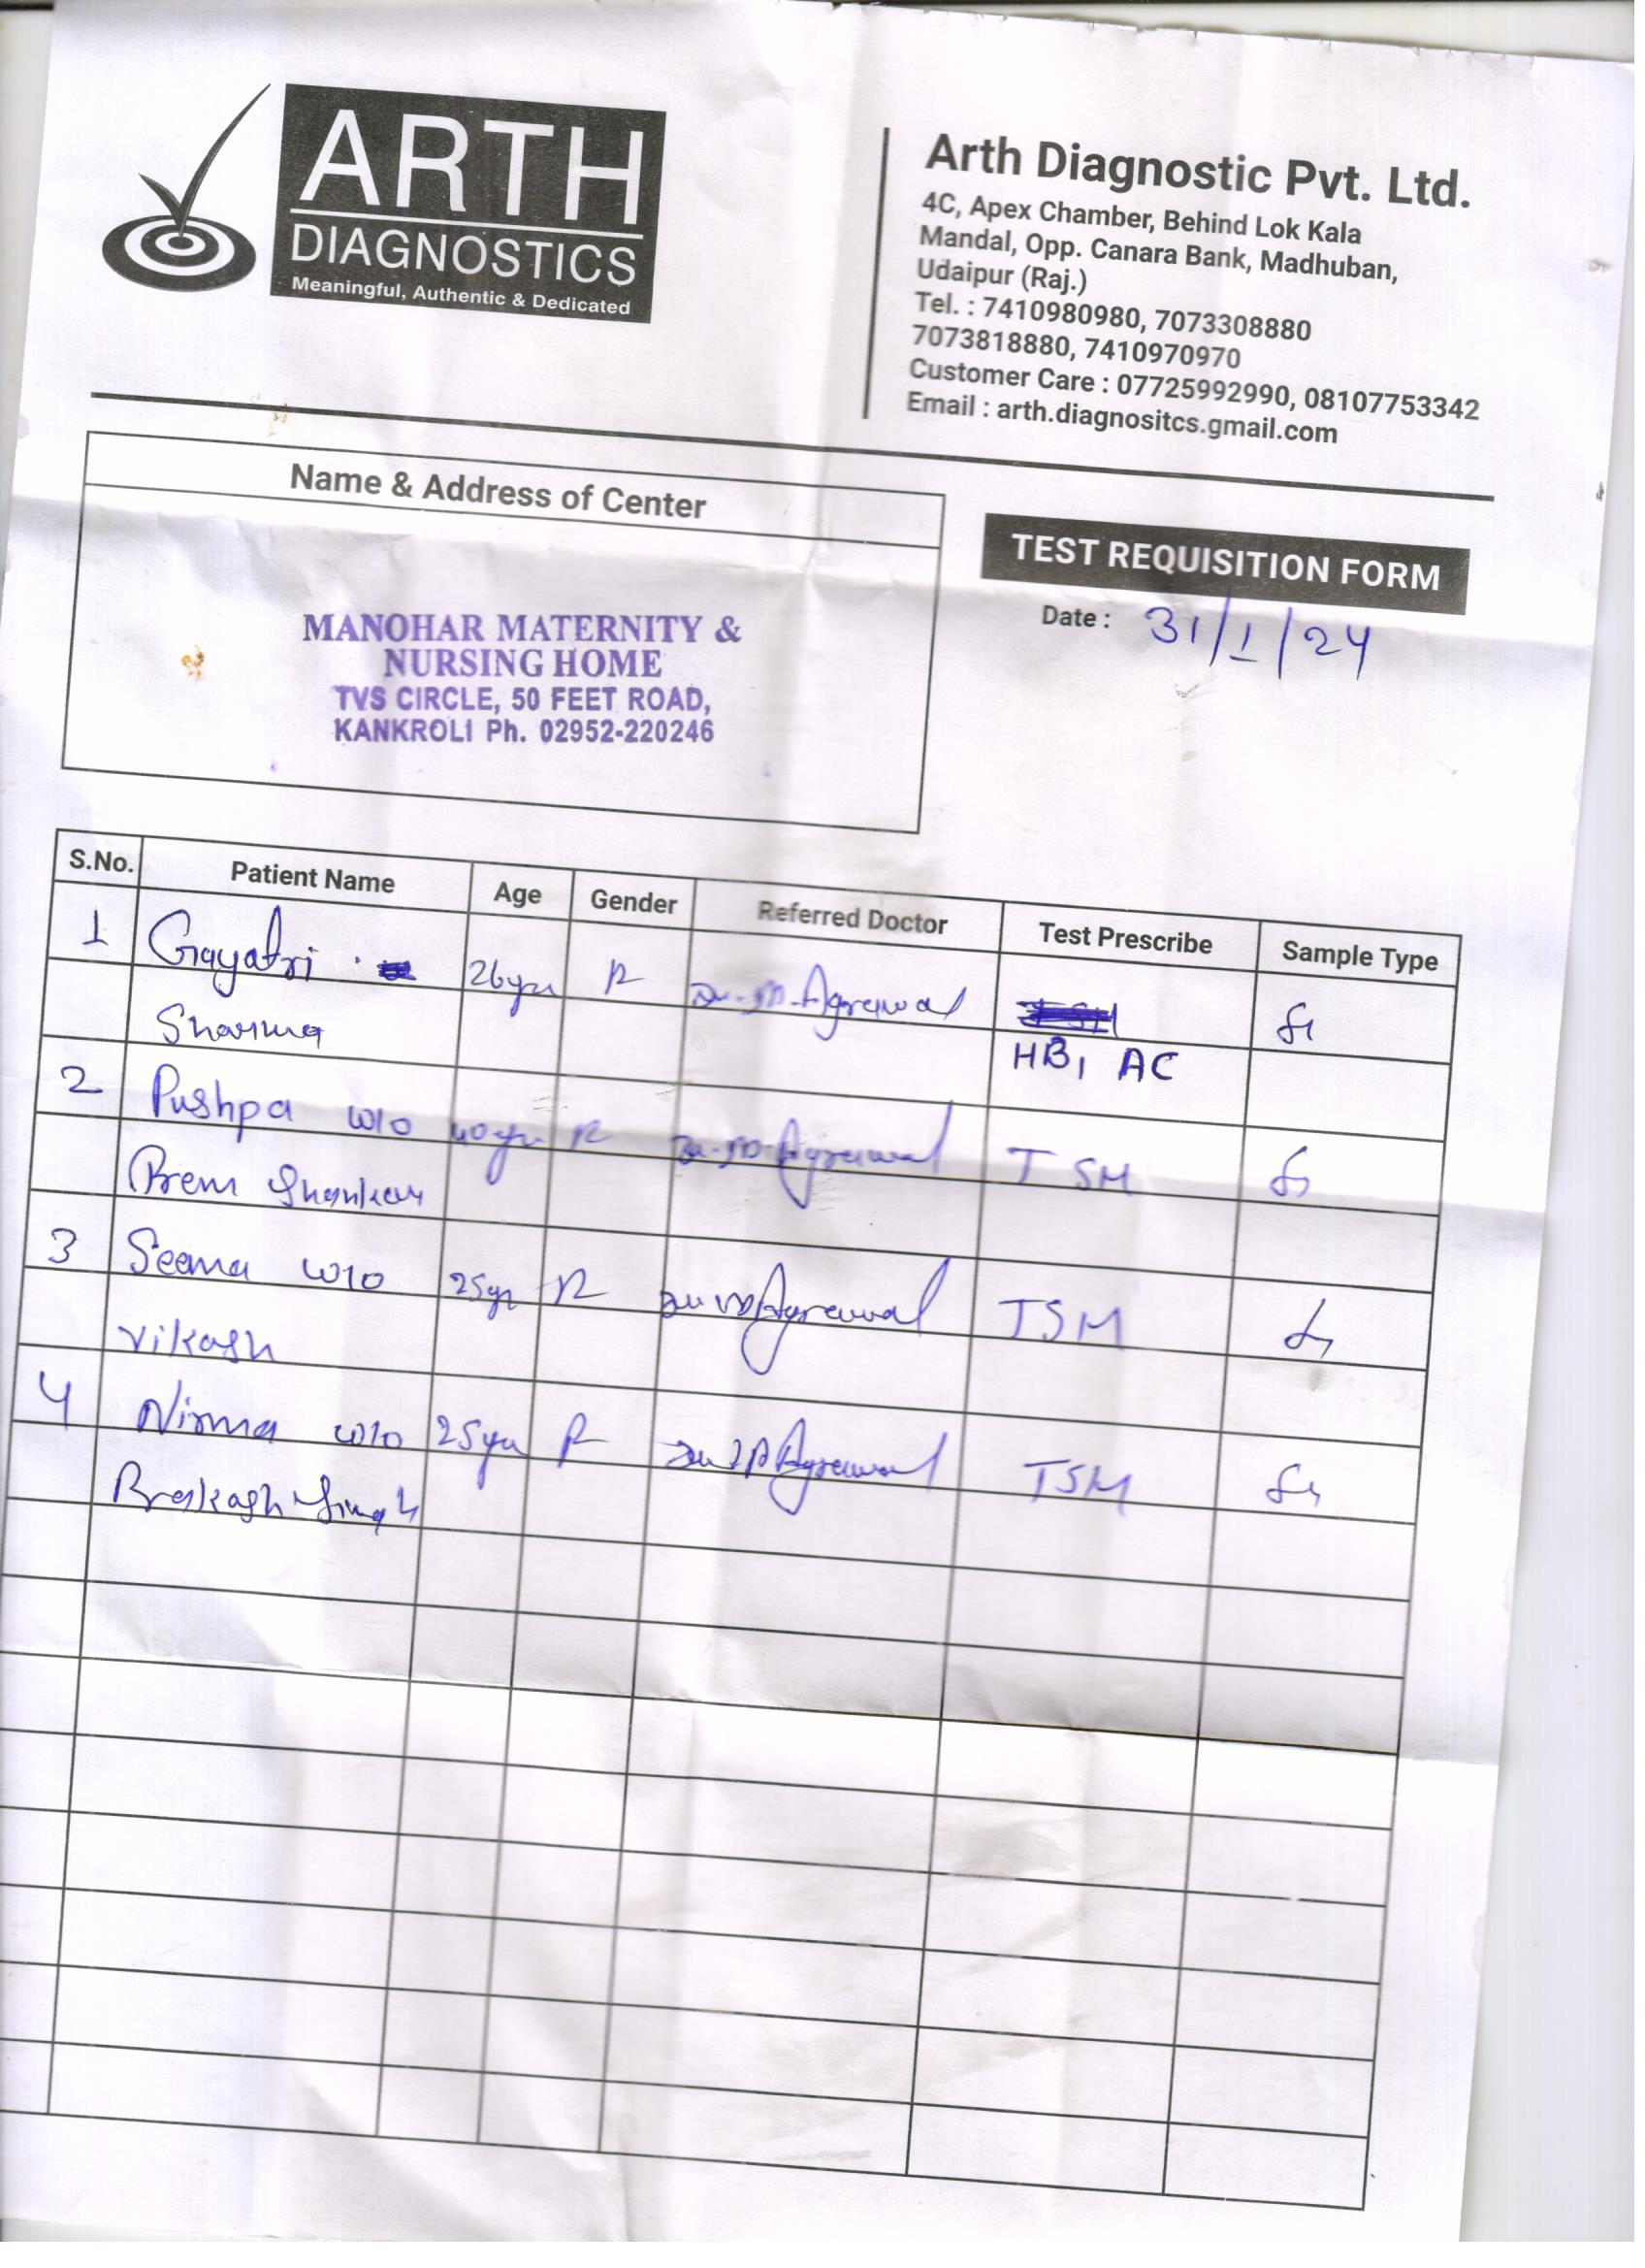 ARTH
DIAGNOSTICS
Meaningful, Authentic & Dedicated
Arth Diagnostic Pvt. Ltd.
4C, Apex Chamber, Behind Lok Kala
Mandal, Opp. Canara Bank, Madhuban,
Udaipur (Raj.)
Tel. : 7410980980, 7073308880
7073818880, 7410970970
Customer Care : 07725992990, 08107753342
Email : arth.diagnositcs.gmail.com
Name & Address of Center
MANOHAR MATERNITY &
NURSING HOME
TVS CIRCLE, 50 FEET ROAD,
KANKROLI Ph. 02952-220246
TEST REQUISITION FORM
Date : 31/1/24
S.No. Patient Name Age Gender Referred Doctor Test Prescribe Sample Type
1 Gayatri 26yrs Agrawal
Sharma HB, AC
2 Pushpa W/O 40yrs Agrawal TSM
Prem Shankar
3 Seema W/O 25yr Agrawal TSM
Vikash
4 Nirma W/O 25yrs Agrawal TSM
Prakash Singh